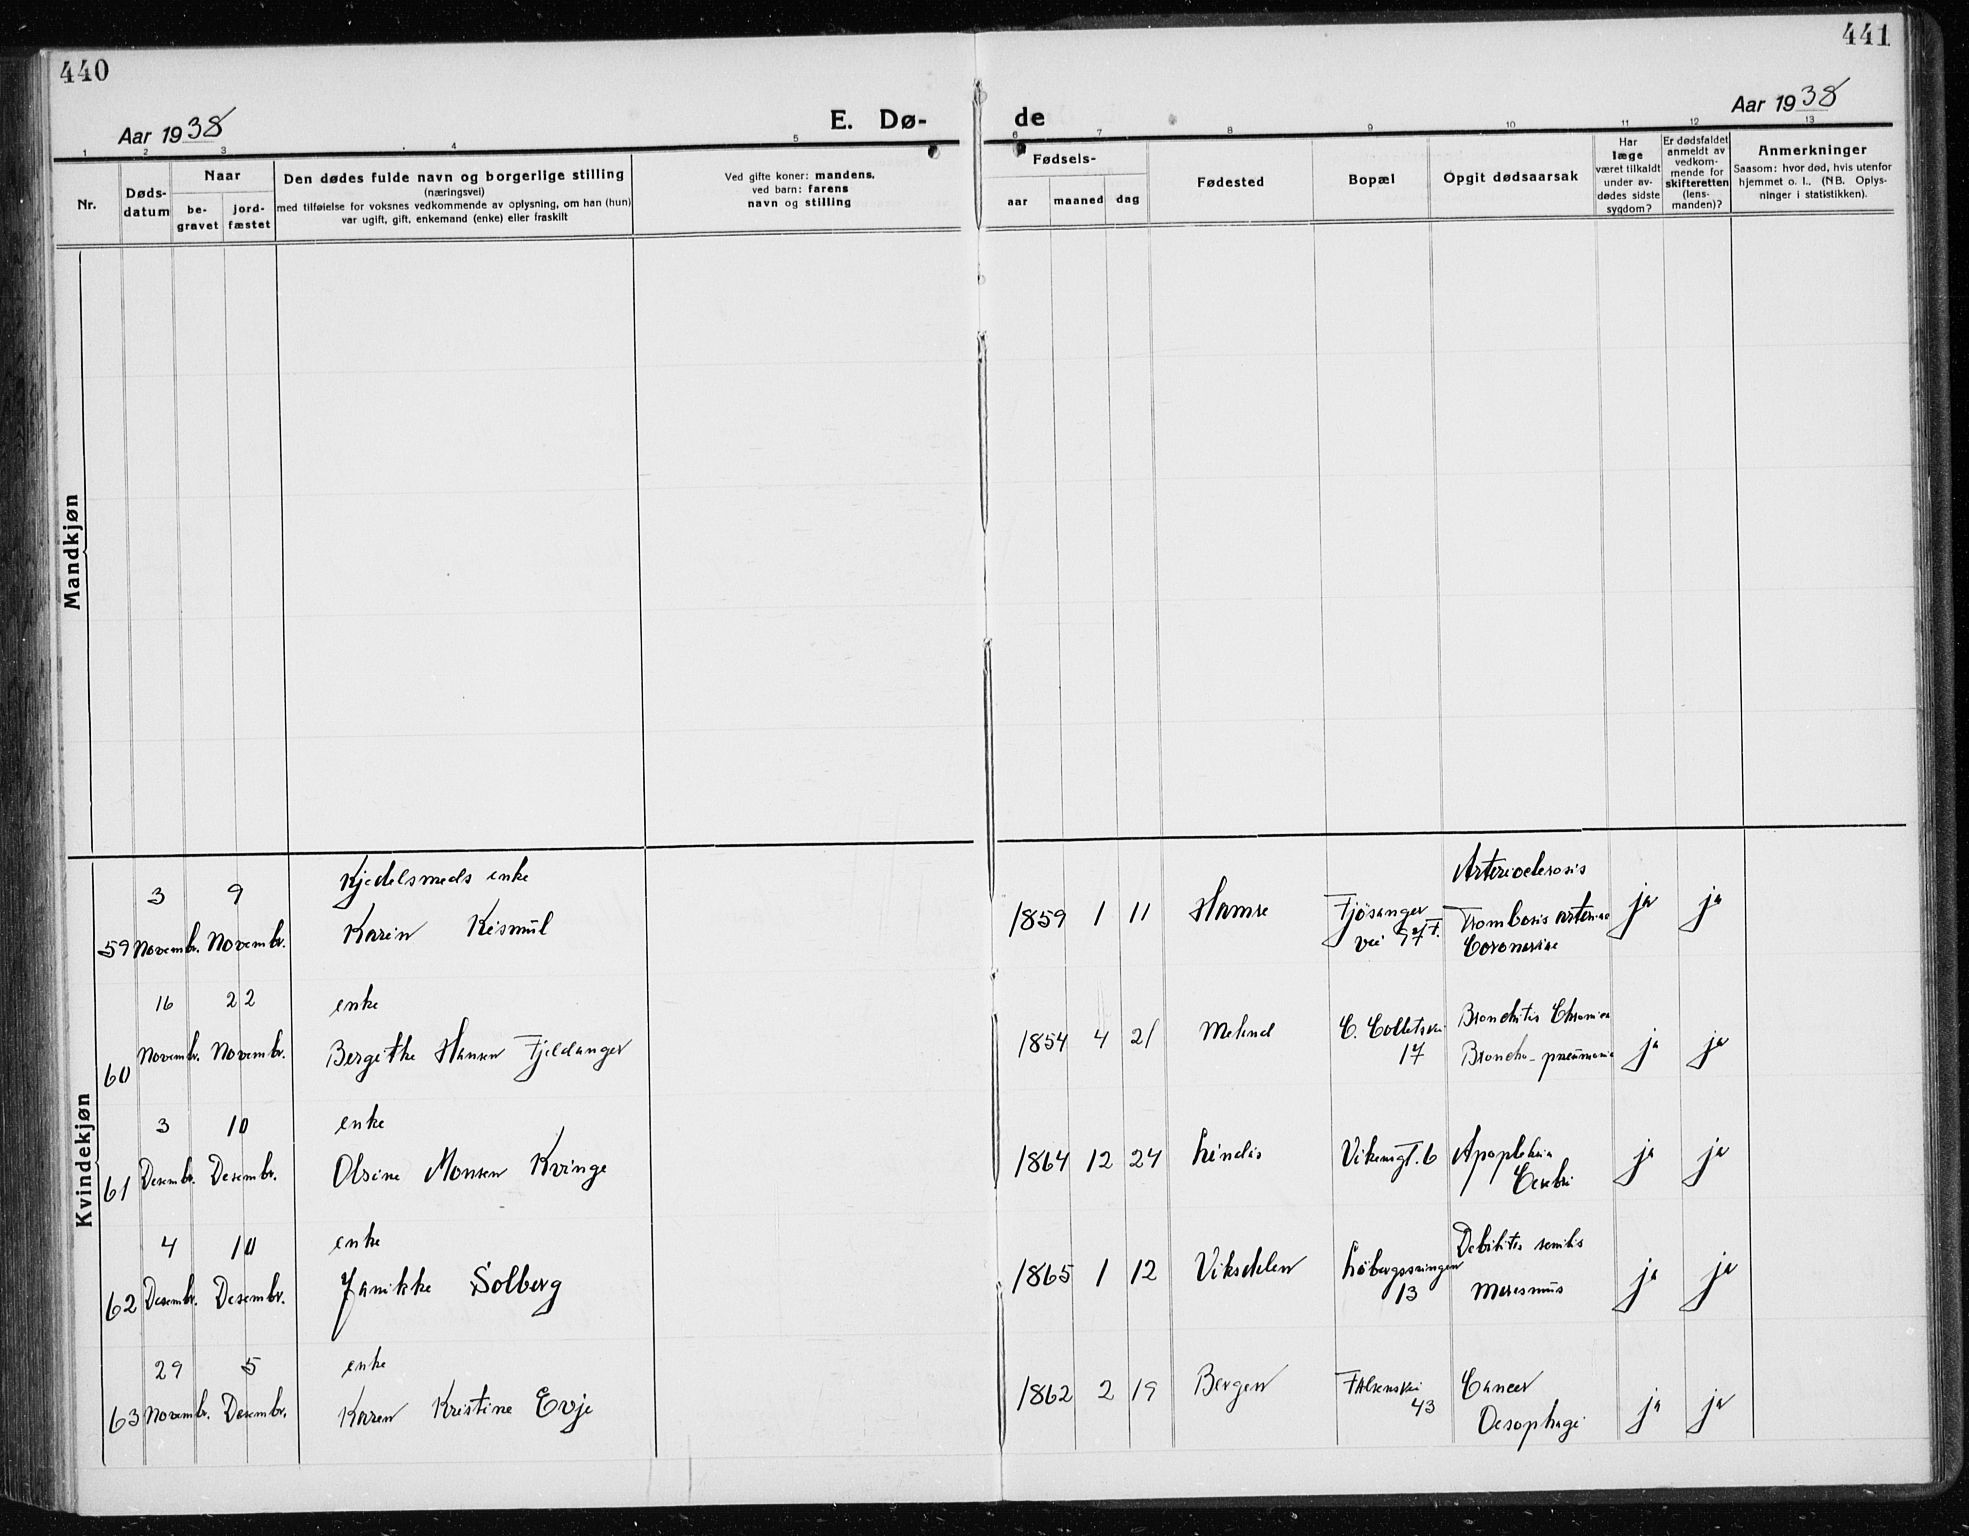 440
441
Aar 1938
E. Dø-
de
Aar 1938
1 2 3 4 5 6 7 8 9 10 11 12 13
Nr.
Døds-
datum
Naar
be-
gravet
jord-
fæstet
Den dødes fulde navn og borgerlige stilling
(næringsvei)
med tilføielse for voksnes vedkommende av oplysning, om han (hun)
var ugift, gift, enkemand (enke) eller fraskilt
Ved gifte koner: mandens,
ved barn: farens
navn og stilling
Fødsels-
aar maaned dag
Fødested
Bopæl
Opgit dødsaarsak
Har
læge
været tilkaldt
under av-
dødes sidste
sygdom?
Er dødsfaldet
anmeldt av
vedkom-
mende for
skifteretten
(lens-
manden)?
Anmerkninger
Saasom: hvor død, hvis utenfor
hjemmet o. l., (NB. Oplys-
ninger i statistikken).
Mandkjøn
Kvindekjøn
3 9 Kjedelsmeds enke Arteriosclerosis
59 Novembr. Novembr. Karin Kismul 1859 1 11 Hamre Fjøsanger Trombosis arteriae ja ja
vei Coronariae
16 22 enke Bronchitis Chronica
60 Novembr. Novembr. Bergithe Hansen Fjeldanger 1854 4 21 Meland C. Colletsvei Broncho-pneumonia ja ja
17
3 10 enke
61 Desembr. Desembr. Olsine Monsen Kvinge 1864 12 24 Lindås Vikensgt. 6 Apopleksia ja ja
Cerebri
4 10 enke Debilitas senilis
62 Desembr. Desembr. Janikke Solberg 1865 1 12 Viksdalen 13 Marasmus ja ja
29 5 enke
63 Novembr. Desembr. Karen Kristine Evje 1862 2 19 Bergen Falsensvei Cancer ja ja
43 Oesophagi